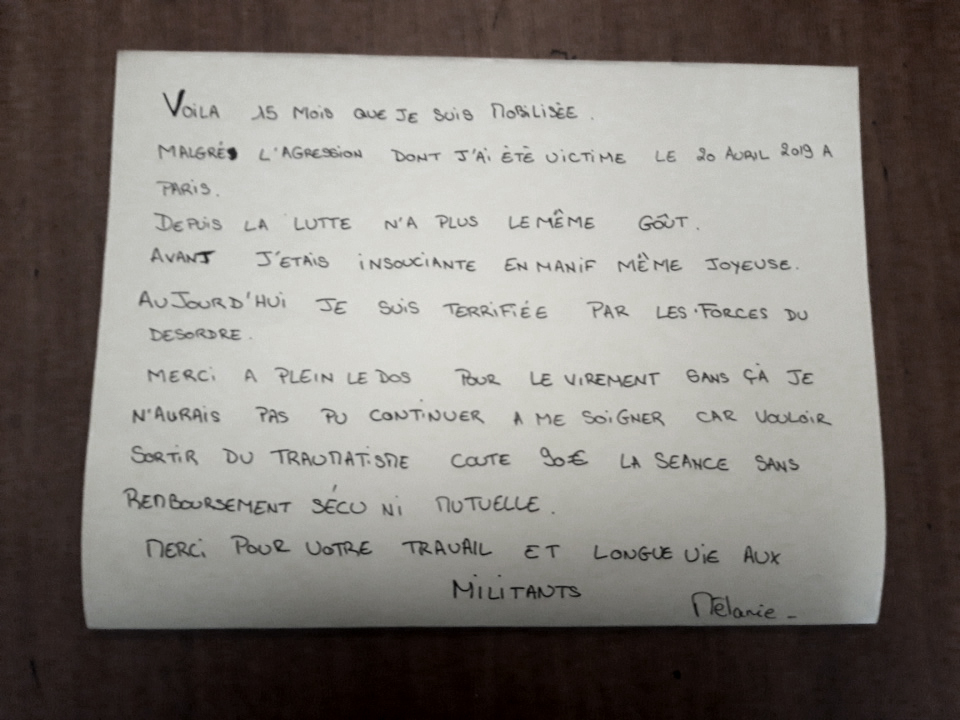 VOILA 15 MOIS QUE JE SUIS MOBILISÉE.
MALGRÉS L'AGRESSION DONT J'AI ÉTÉ VICTIME LE 20 AVRIL 2019 A
PARIS.
DEPUIS LA LUTTE N'A PLUS LE MÊME GOÛT.
AVANT J'ETAIS INSOUCIANTE EN MANIF MÊME JOYEUSE.
AUJOURD'HUI JE SUIS TERRIFIÉE PAR LES FORCES DU
DESORDRE.
MERCI A PLEIN LE DOS POUR LE VIREMENT SANS ÇÀ JE
N'AURAIS PAS PU CONTINUER A ME SOIGNER CAR VOULOIR
SORTIR DU TRAUMATISME COUTE 90€ LA SEANCE SANS
REMBOURSEMENT SÉCU NI MUTUELLE.
MERCI POUR VOTRE TRAVAIL ET LONGUE VIE AUX
MILITANTS
Mélanie -